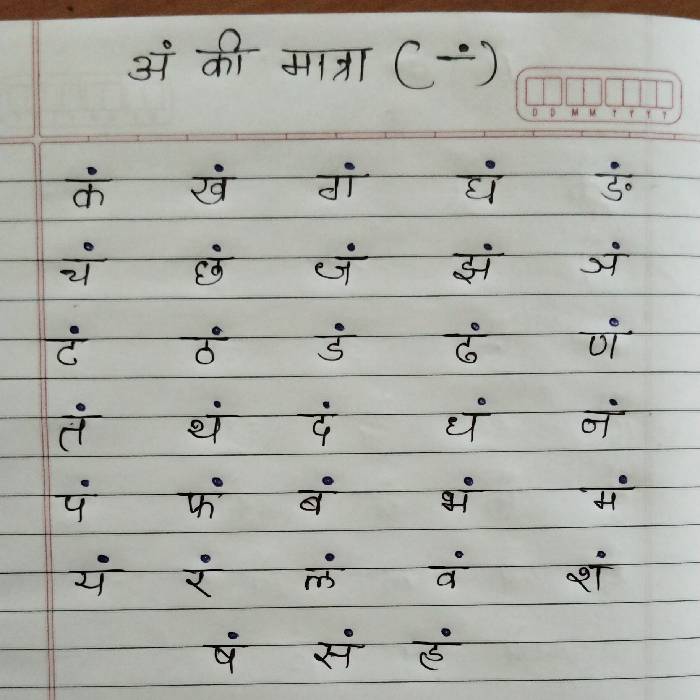 अं की मात्रा ( ∸ )
D D M M Y Y Y Y
कं खं गं घं ङं
चं छं जं झं ञं
टं ठं डं ढं णं
तं थं दं धं नं
पं फं बं भं मं
यं रं लं वं शं
षं सं हं